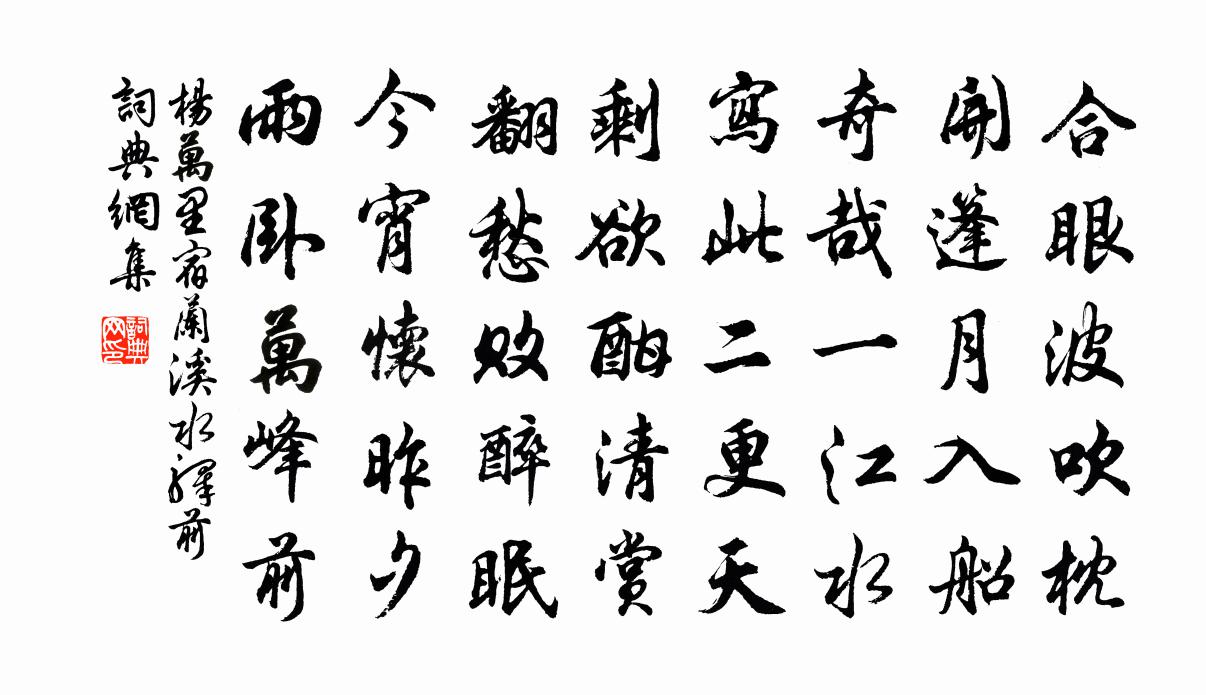 合眼波吹枕
開篷月入船
奇哉一江水
寫此二更天
剩欲酣清賞
翻愁敗醉眠
今宵懷昨夕
雨臥萬峰前
楊萬里宿蘭溪水驛前
詞典網集
詞典网印